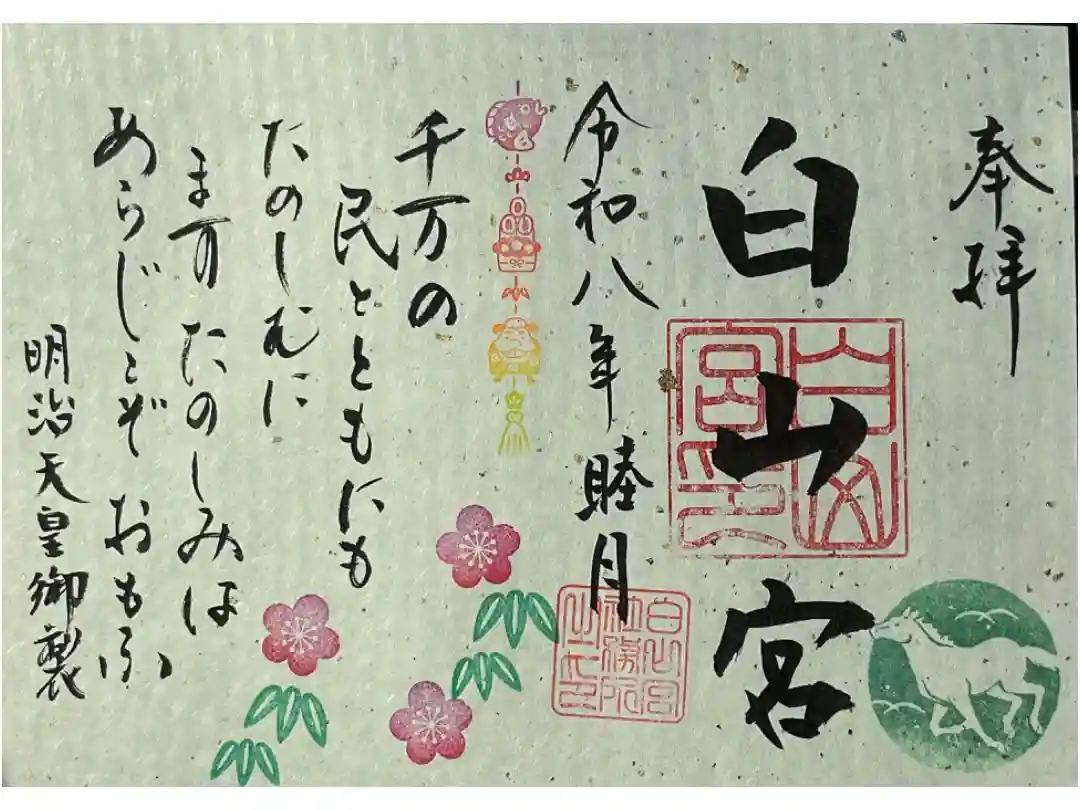 奉拝
白山宮
白山宮印
令和八年睦月
白山宮
社務所
之印
千万の
民とともにも
たのしむに
ます たのしみは
あらじとぞ おもふ
明治天皇御製